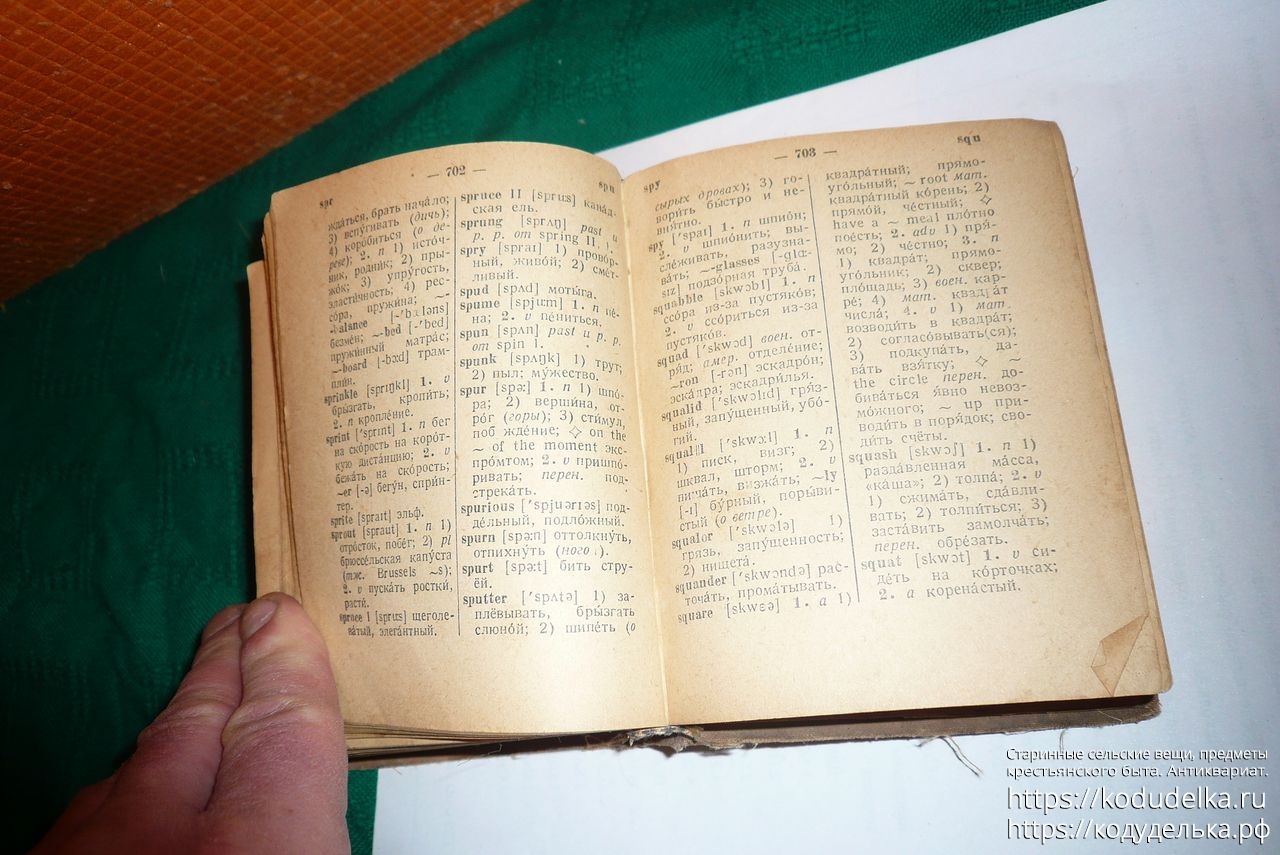 — 702 —
spr
spu
ждáться, брать начáло;
3) вспу́гивать (дичь);
4) корóбиться (о де-
реве); 2. n 1) истóч-
ник, роднúк; 2) пры-
жóк; 3) упру́гость,
эластúчность; 4) рес-
сóра, пружúна; ~-
-balance [-'bæləns]
безмéн; ~-bed [-'bed]
пружúнный матрáс;
~-board [-bɔ:d] трам-
плúн.
sprinkle [sprɪŋkl] 1. v
бры́згать, кропúть;
2. n кроплéние.
sprint ['sprɪnt] 1. n бег
на скóрость на корóт-
кую дистáнцию; 2. v
бежáть на скóрость;
~er [-ə] бегу́н, сприн-
тер.
sprite [spraɪt] эльф.
sprout [spraut] 1. n 1)
отрóсток, побéг; 2) pl
брюссéльская капу́ста
(тж. Brussels ~s);
2. v пускáть росткú,
растú.
spruce I [spru:s] щеголе-
вáтый, элегáнтный.
spruce II [spru:s] канáд-
ская ель.
sprung [sprʌŋ] past и
p. p. от spring II, 1.
spry [spraɪ] 1) провóр-
ный, живóй; 2) смéт-
ливый.
spud [spʌd] моты́га.
spume [spju:m] 1. n пé-
на; 2. v пéниться.
spun [spʌn] past и p. p.
от spin 1.
spunk [spʌŋk] 1) трут;
2) пыл; му́жество.
spur [spə:] 1. n 1) шпó-
ра; 2) вершúна, от-
рóг (горы́); 3) стúмул,
поб ждéние; ✧ on the
~ of the moment экс-
прóмтом; 2. v пришпó-
ривать; перен. под-
стрекáть.
spurious ['spjuərɪəs] под-
дéльный, подлóжный.
spurn [spə:n] оттолкну́ть,
отпихну́ть (ногой).
spurt [spə:t] бить стру-
éй.
sputter ['spʌtə] 1) за-
плёвывать, бры́згать
слюнóй; 2) шипéть (о
— 703 —
spy
squ
сырых дровах); 3) го-
ворúть бы́стро и не-
вня́тно.
spy ['spaɪ] 1. n шпиóн;
2. v шпиóнить; вы-
слéживать, разузна-
вáть; ~-glasses [-glɑ:-
sɪz] подзóрная трубá.
squabble [skwɔbl] 1. n
ссóра из-за пустякóв;
2. v ссóриться из-за
пустякóв.
squad ['skwɔd] воен. от-
ря́д; амер. отделéние;
~ron [-rən] эскадрóн;
эскáдра; эскадрúлья.
squalid ['skwɔlɪd] гря́з-
ный, запу́щенный, убó-
гий.
squall ['skwɔ:l] 1. n
1) писк, визг; 2)
шквал, шторм; 2. v
пищáть, визжáть; ~ly
[-ɪ] бу́рный, поры́ви-
стый (о ветре).
squalor ['skwɔlə] 1)
грязь, запу́щенность;
2) нищетá.
squander ['skwɔndə] рас-
точáть, промáтывать.
square [skwɛə] 1. a 1)
квадрáтный; прямо-
угóльный; ~ root мат.
квадрáтный кóрень; 2)
прямóй, чéстный; ✧
have a ~ meal плóтно
поéсть; 2. adv 1) пря́-
мо; 2) чéстно; 3. n
1) квадрáт; прямо-
угóльник; 2) сквер;
плóщадь; 3) воен. кар-
рé; 4) мат. квадрáт
числá; 4. v 1) мат.
возводúть в квадрáт;
2) согласóвывать(ся);
3) подкупáть, да-
вáть взя́тку; ✧ ~
the circle перен. до-
бивáться я́вно невоз-
мóжного; ~ up при-
водúть в поря́док; сво-
дúть счёты.
squash [skwɔʃ] 1. n 1)
раздáвленная мáсса,
«кáша»; 2) толпá; 2. v
1) сжимáть, сдáвли-
вать; 2) толпúться; 3)
застáвить замолчáть;
перен. обрéзать.
squat [skwɔt] 1. v си-
дéть на кóрточках;
2. a коренáстый.
Старинные сельские вещи, предметы
крестьянского быта. Антиквариат.
https://kodudelka.ru
https://кодуделька.рф